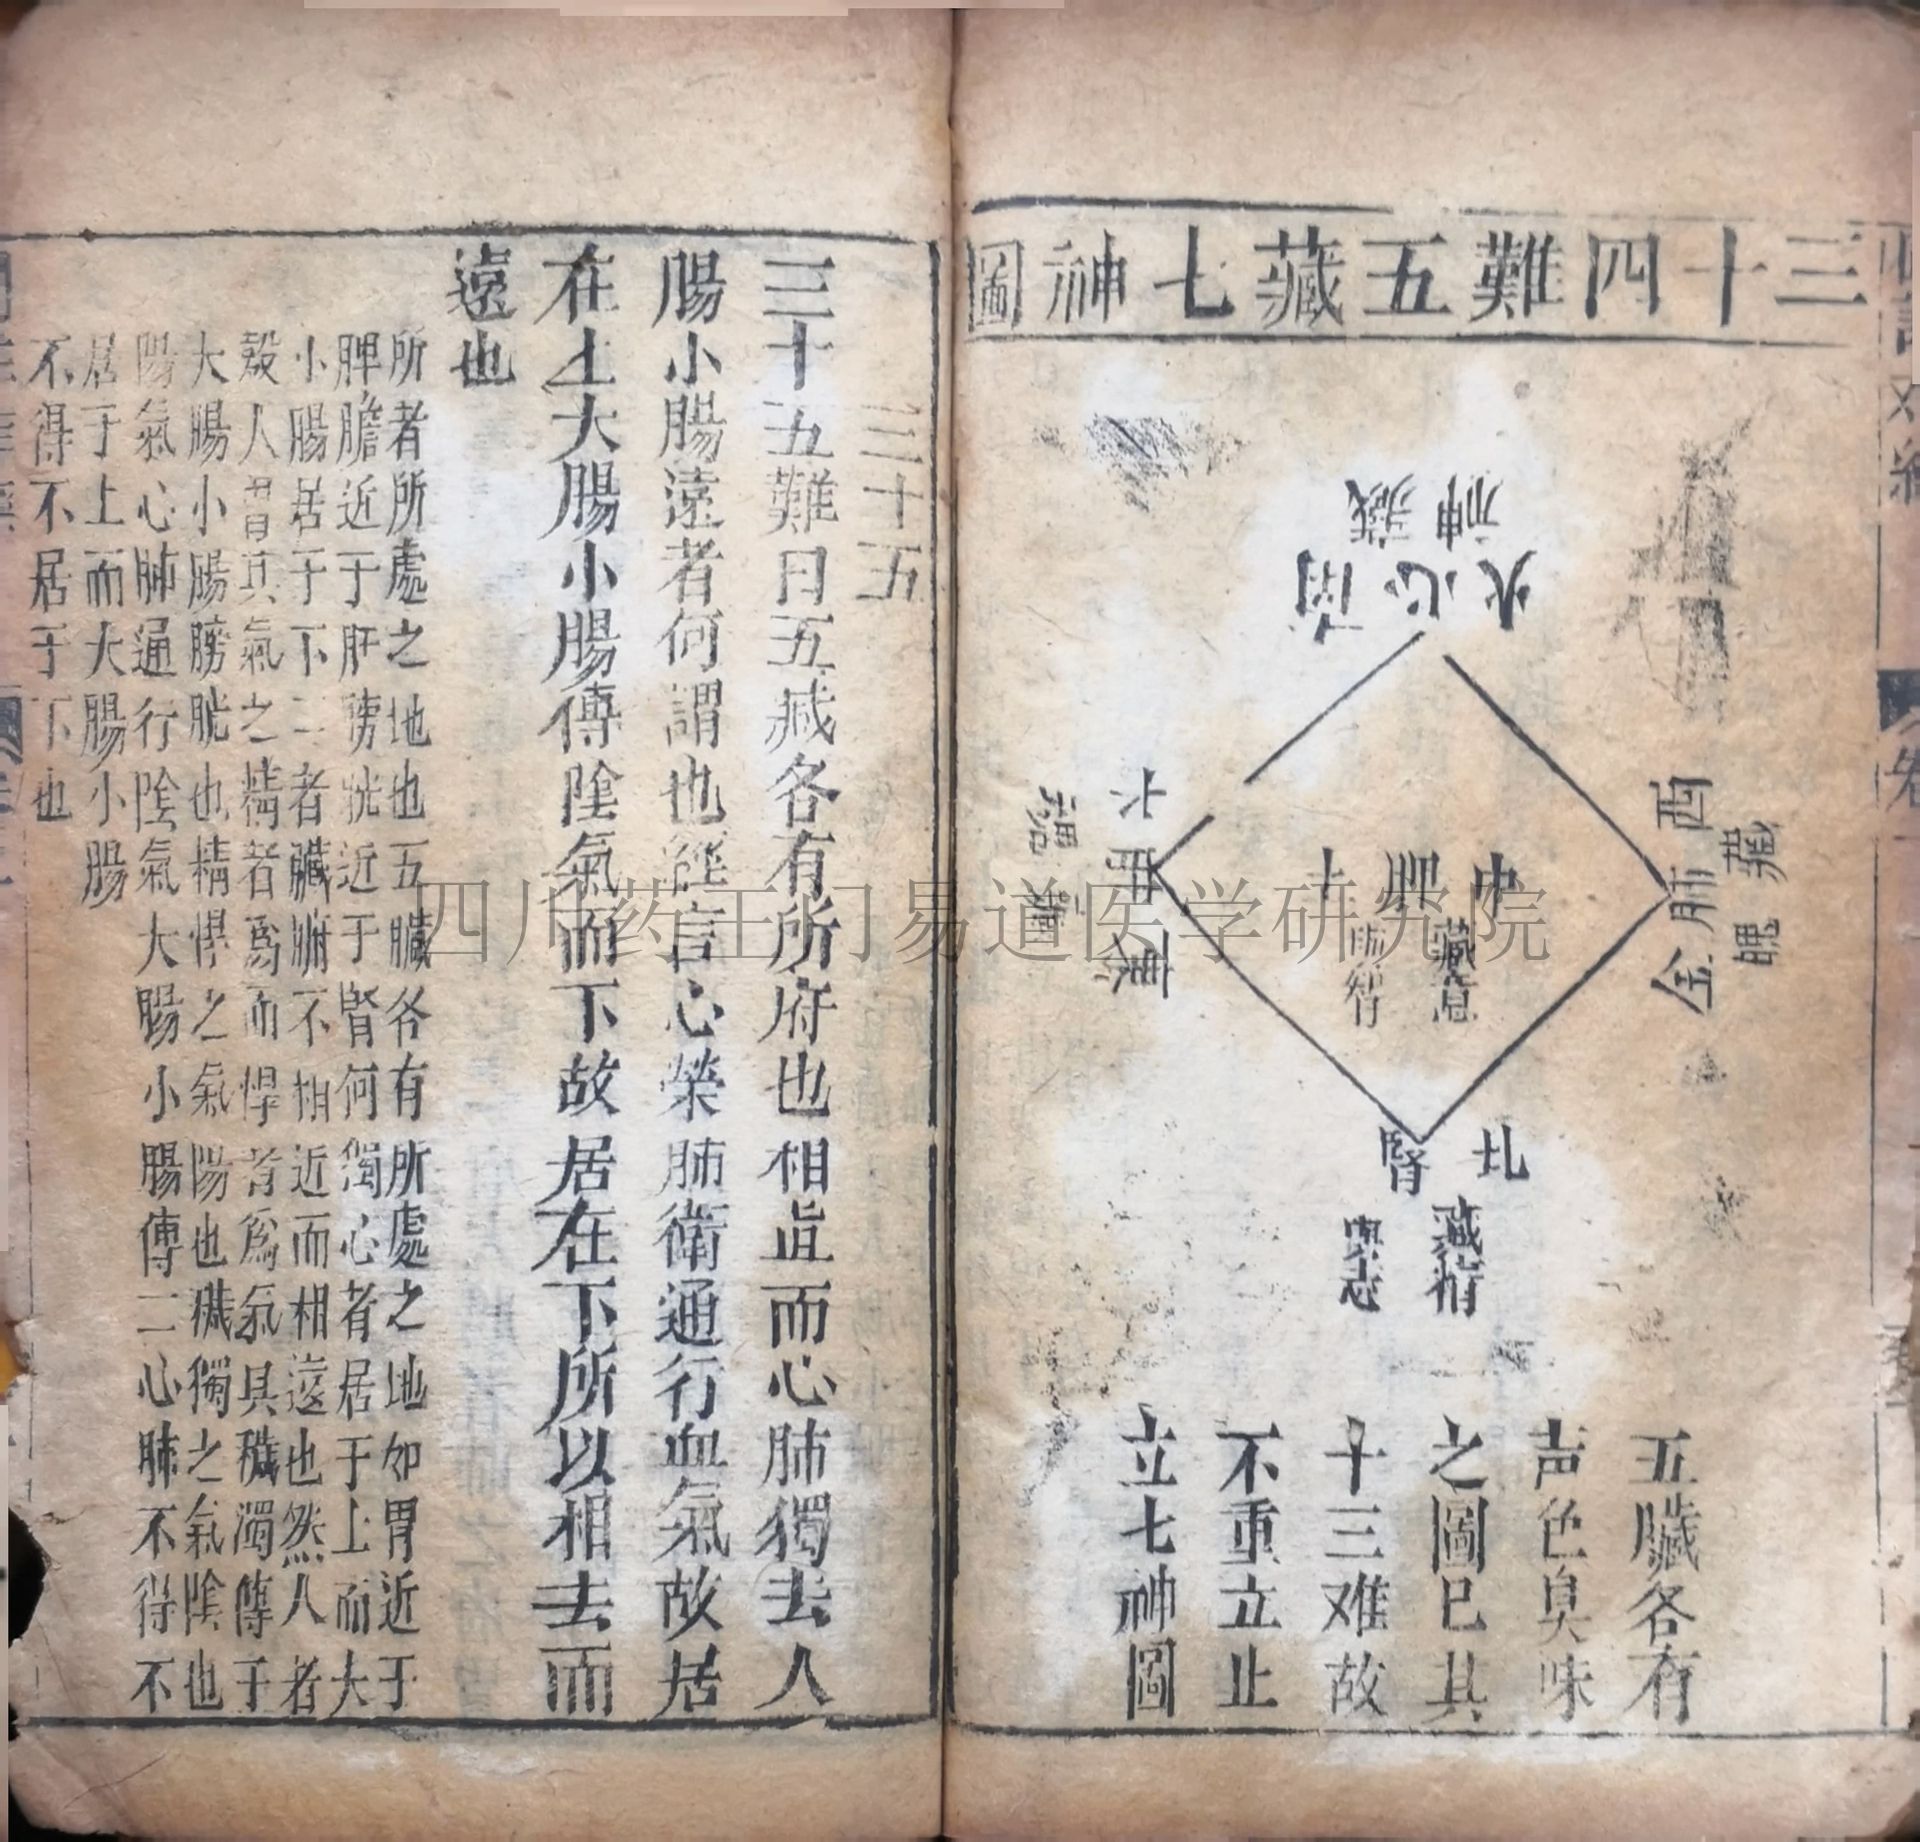 三十四難五藏七神圖
藏神
火心南
酉肺金
藏魄
中脾土
藏意
與智
木
東
藏魂
北
腎
藏精
與志
五臟各有
声色臭味
之圖已具
十三难故
不重立止
立七神圖
三十五
三十五難曰五臧各有所府也相近而心肺獨去人
腸小腸遠者何謂也經言心榮肺衛通行血氣故居
在上大腸小腸傳陰氣而下故居在下所以相去而
遠也
所者所處之地也五臟各有所處之地如胃近于
脾膽近于肝膀胱近于腎何獨心者居于上而大
小腸居于下二者臟腑不相近而相遠也然人者
穀人胃其氣之精者為而悍者為氣具穢濁傳于
大腸小腸膀胱也精悍之氣陽也穢獨之氣陰也
陽氣心肺通行陰氣大腸小腸傳二心肺不得不
居于上而大腸小腸
不得不居于下也
四川药王门易道医学研究院